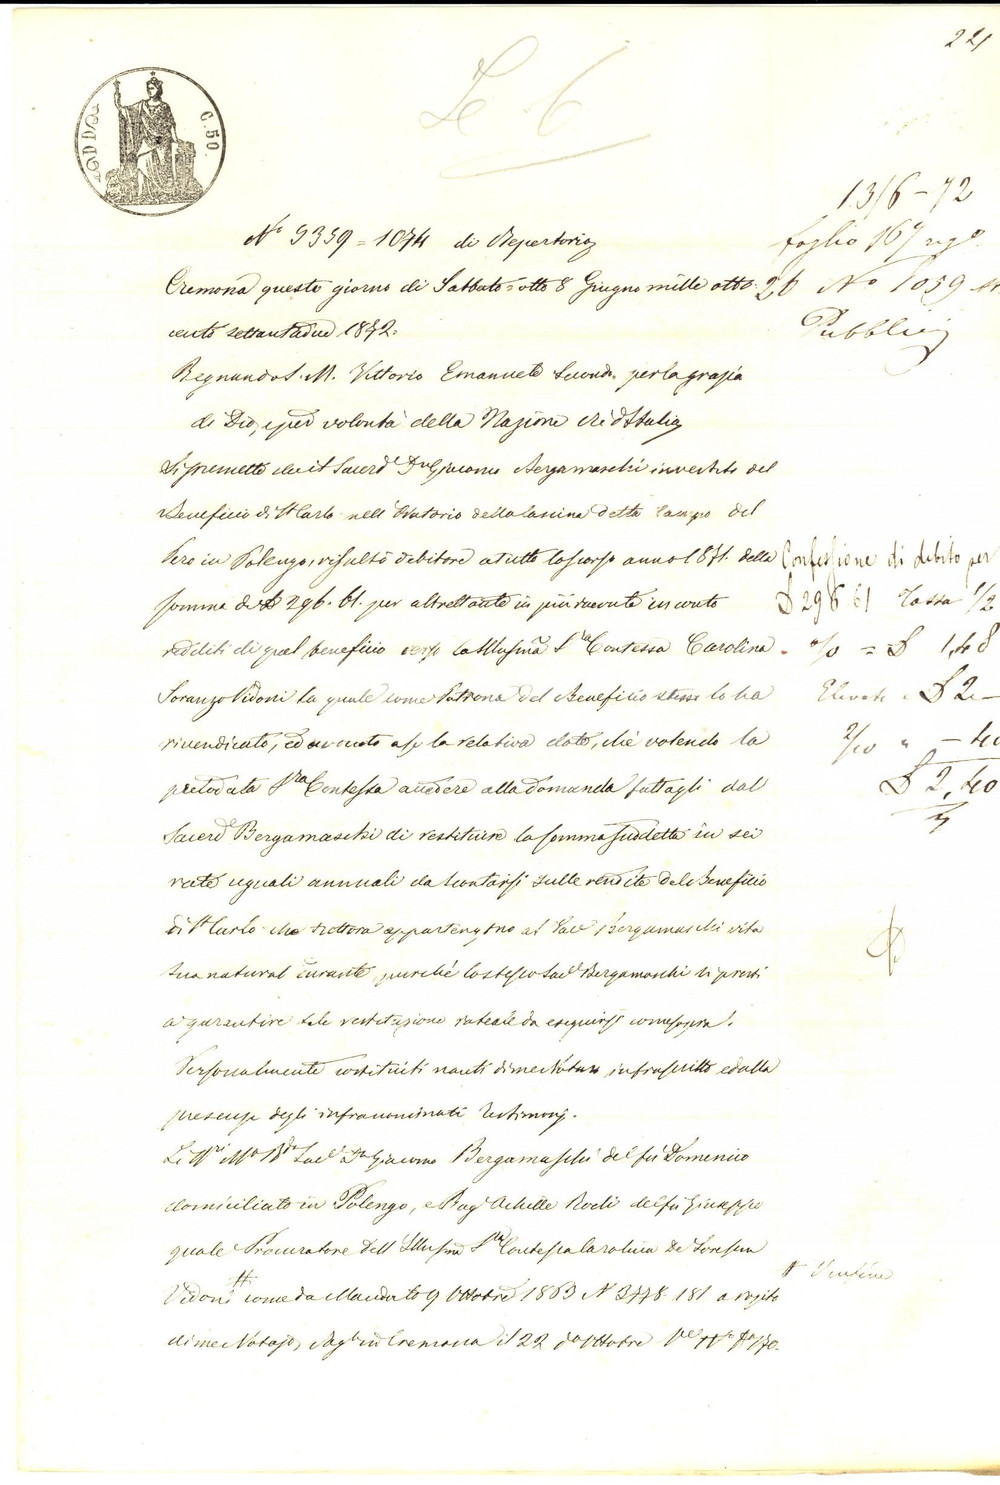 221
C. 50.
13/6-72
foglio 167 reg.º
26 Nº 1039
Pubblici
Nº 9359=1074 di Repertorio
Cremona questo giorno di Sabbato=otto 8 Giugno mille otto
cento settantadue 1872.
Regnando S. M. Vittorio Emanuele Secondo per la grazia
di Dio, e per volontà della Nazione Re d'Italia
Si premette che il Sacerd.e Dn Giacomo Bergamaschi investito del
Beneficio di Sn Carlo nell'Oratorio della Cascina detta Campo del
Pero in Polengo, risultò debitore a tutto lo scorso anno 1871. della
somma di £ 296. 61. per altrettante in più ricevute in conto
redditi di quel beneficio verso la Illusma Sra Contessa Carolina
Soranzo Vidoni la quale come Patrona del Beneficio stesso lo ha
rivendicato, ed avocato a se la relativa dote, che volendo la
prelodata Sra Contessa accedere alla domanda fattagli dal
Sacerd. Bergamaschi di restituire la somma suddetta in sei
rate uguali annuali da scontarsi sulle rendite del Beneficio
di Sn Carlo che tuttora appartengono al Sace Bergamaschi vita
sua natural durante, purchè lo stesso Sace Bergamaschi si presti
a garantire tale restituzione rateale da eseguirsi come sopra.
Personalmente costituiti nanti di me Notaro infrascritto ed alla
presenza degli infranominati Testimonj.
Li Sacd Dn Giacomo Bergamaschi del fu Domenico
domiciliato in Polengo, e Rag. Achille Rodi del fu Giuseppe
quale Procuratore dell'Illusma Sra Contessa Carolina De Soresina
Vidoni # come da Mandato 9 Ottobre 1863 N 3778. 181 a rogito
di me Notajo, Regto in Cremona il 22 do Ottobre
Confessione di debito per
£ 296 61 Tassa 1/2
% = £ 1,48
Elevate £ 2-
2/10 " - 40
£ 2,40